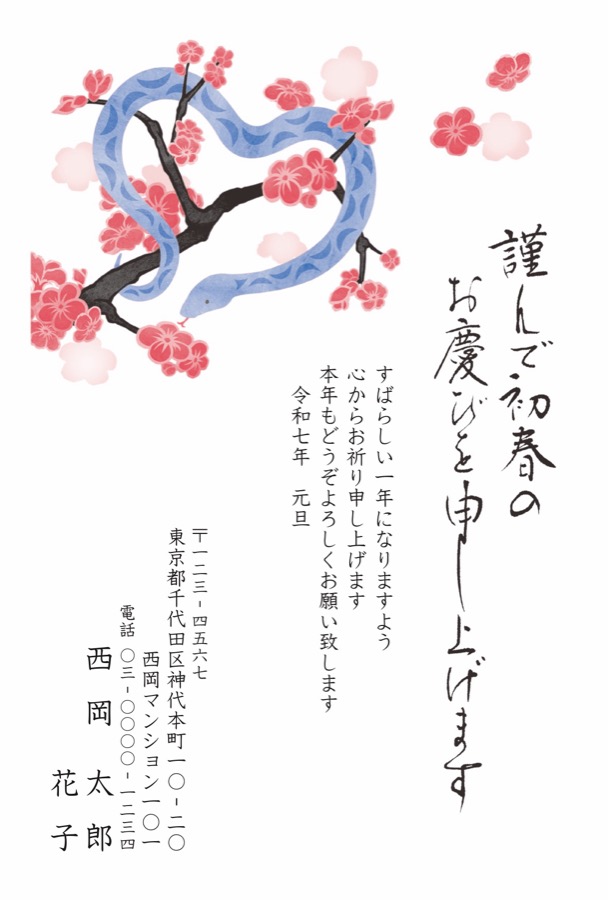 謹んで初春の
お慶びを申し上げます
すばらしい一年になりますよう
心からお祈り申し上げます
本年もどうぞよろしくお願い致します
令和七年　元旦
〒一二三-四五六七
東京都千代田区神代本町一〇-二〇
西岡マンション一〇一
電話　〇三-〇〇〇〇-一二三四
西岡　太郎
花子